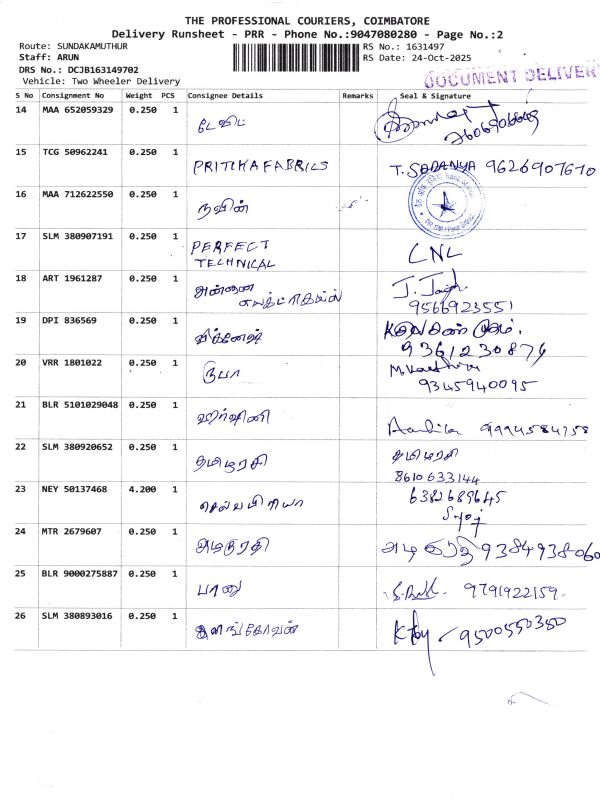 THE PROFESSIONAL COURIERS, COIMBATORE
Delivery Runsheet - PRR - Phone No.:9047080280 - Page No.:2
Route: SUNDAKAMUTHUR RS No.: 1631497
Staff: ARUN RS Date: 24-Oct-2025
DRS No.: DCJB163149702
Vehicle: Two Wheeler Delivery
DOCUMENT DELIVER
S No Consignment No Weight PCS Consignee Details Remarks Seal & Signature
14 MAA 652059329 0.250 1 டேவிட்
15 TCG 50962241 0.250 1 PRITIKA FABRICS T. SARANYA 9626907670
16 MAA 712622550 0.250 1 நவின்
17 SLM 380907191 0.250 1 PERFECT TECHNICAL CNL
18 ART 1961287 0.250 1 அன்னை எலக்ட்ரிகல்ஸ் J.
9566923551
19 DPI 836569 0.250 1 விக்னேஷ்
9361230874
20 VRR 1801022 0.250 1 ரூபா M.
9345940095
21 BLR 5101029048 0.250 1 ஹர்ஷினி
22 SLM 380920652 0.250 1 தமிழரசி தமிழரசி
8610633144
23 NEY 50137468 4.200 1 செல்வபிரியா 6382689645
24 MTR 2679607 0.250 1 9384938060
25 BLR 9000275887 0.250 1 பானு 9791922159
26 SLM 380893016 0.250 1 இளங்கோவன் 9500550380